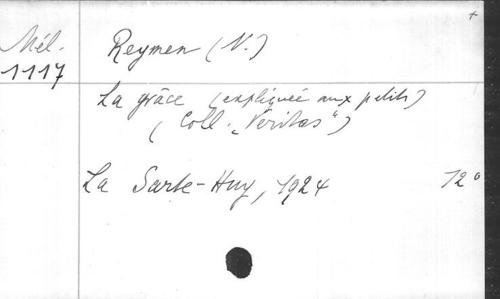 +
Mél.
1117
Reymen (N.)
La grâce (expliquée aux petits)
(Coll. „Veritas")
La Sarte-Huy, 1924 12°